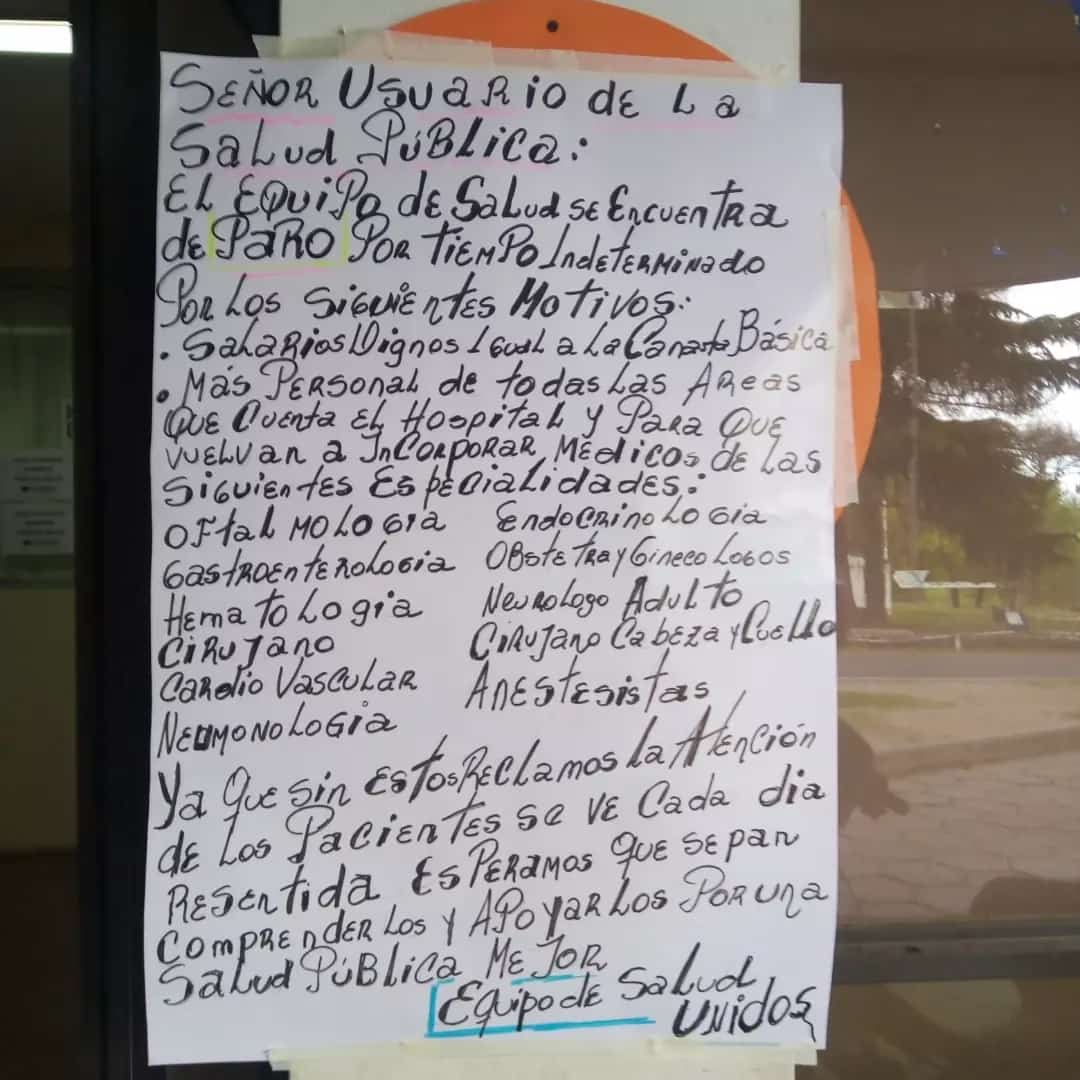 SEÑOR USUARIO DE LA
SALUD PÚBLICA:
EL EQUIPO DE SALUD SE ENCUENTRA
DE PARO POR TIEMPO INDETERMINADO
POR LOS SIGUIENTES MOTIVOS:
• SALARIOS DIGNOS IGUAL A LA CANASTA BÁSICA
• MÁS PERSONAL DE TODAS LAS AREAS
QUE CUENTA EL HOSPITAL Y PARA QUE
VUELVAN A INCORPORAR MÉDICOS DE LAS
SIGUIENTES ESPECIALIDADES:
OFTALMOLOGIA ENDOCRINOLOGIA
GASTROENTEROLOGIA OBSTETRA Y GINECOLOGOS
HEMATOLOGIA NEUROLOGO ADULTO
CIRUJANO CIRUJANO CABEZA Y CUELLO
CARDIO VASCULAR ANESTESISTAS
NEUMONOLOGIA
YA QUE SIN ESTOS RECLAMOS LA ATENCIÓN
DE LOS PACIENTES SE VE CADA DIA
RESENTIDA ESPERAMOS QUE SEPAN
COMPRENDERLOS Y APOYARLOS POR UNA
SALUD PÚBLICA MEJOR
EQUIPO DE SALUD
UNIDOS